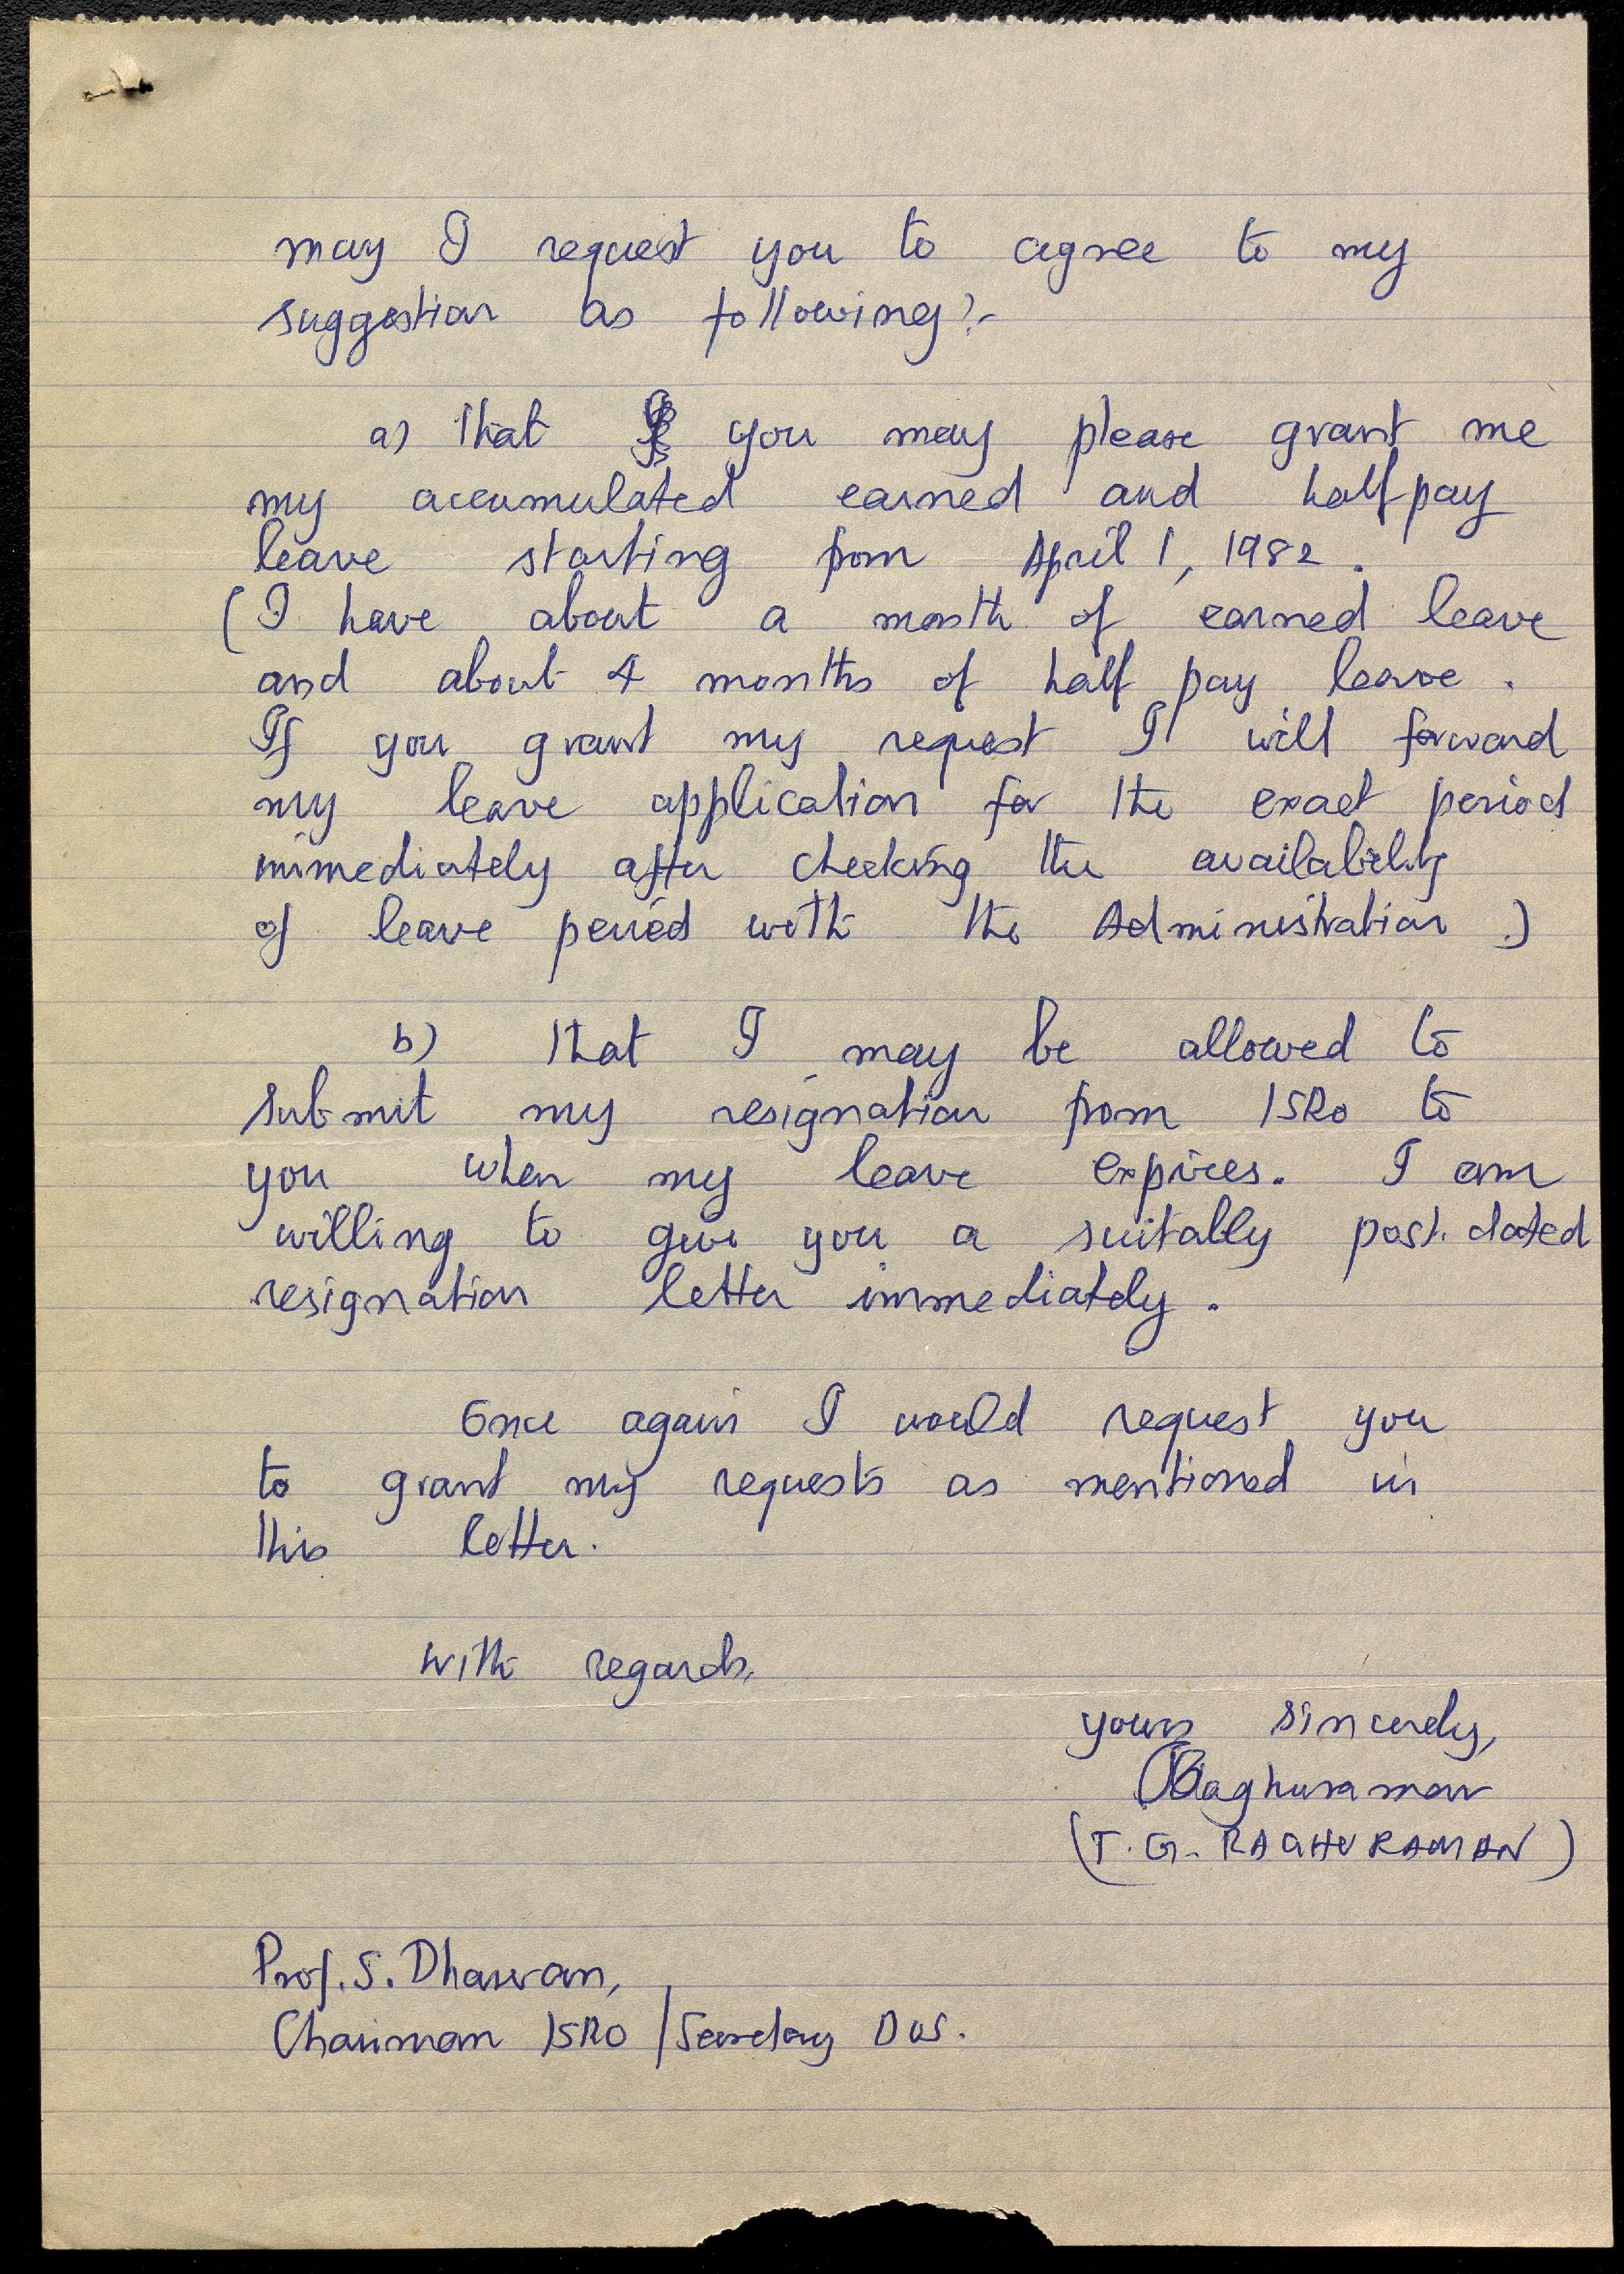 may I request you to agree to my
suggestion as following:-
a) that you may please grant me
my accumulated earned and half pay
leave starting from April 1, 1982.
(I have about a month of earned leave
and about 4 months of half pay leave.
If you grant my request I will forward
my leave application for the exact period
immediately after checking the availability
of leave period with the Administration.)
b) that I may be allowed to
submit my resignation from ISRO to
you when my leave expires. I am
willing to give you a suitably post-dated
resignation letter immediately.
Once again I would request you
to grant my requests as mentioned in
this letter.
With regards,
yours sincerely,
Raghuraman
(T. G. RAGHURAMAN)
Prof. S. Dhawan,
Chairman ISRO/Secretary DOS.